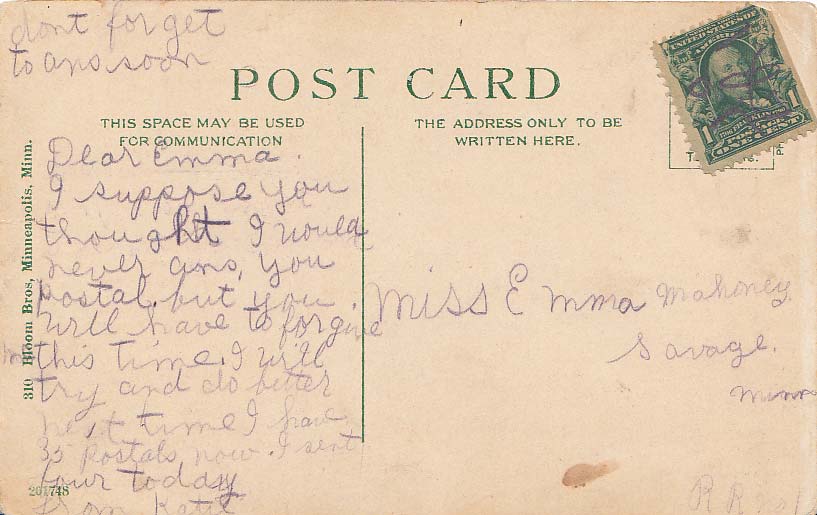 dont forget
to ans soon
POST CARD
THIS SPACE MAY BE USED
FOR COMMUNICATION
THE ADDRESS ONLY TO BE
WRITTEN HERE.
310 Bloom Bros, Minneapolis, Minn.
Dear Emma.
I suppose you
thought I would
never ans, you
postal, but you
will have to forgive
me this time. I will
try and do better
next time I have
35 Postals now. I sent
four today
from Katie
201748
Miss Emma Mahoney
Savage.
Minn
UNITED STATES OF
AMERICA
1 1
FRANKLIN
POSTAGE
ONE CENT